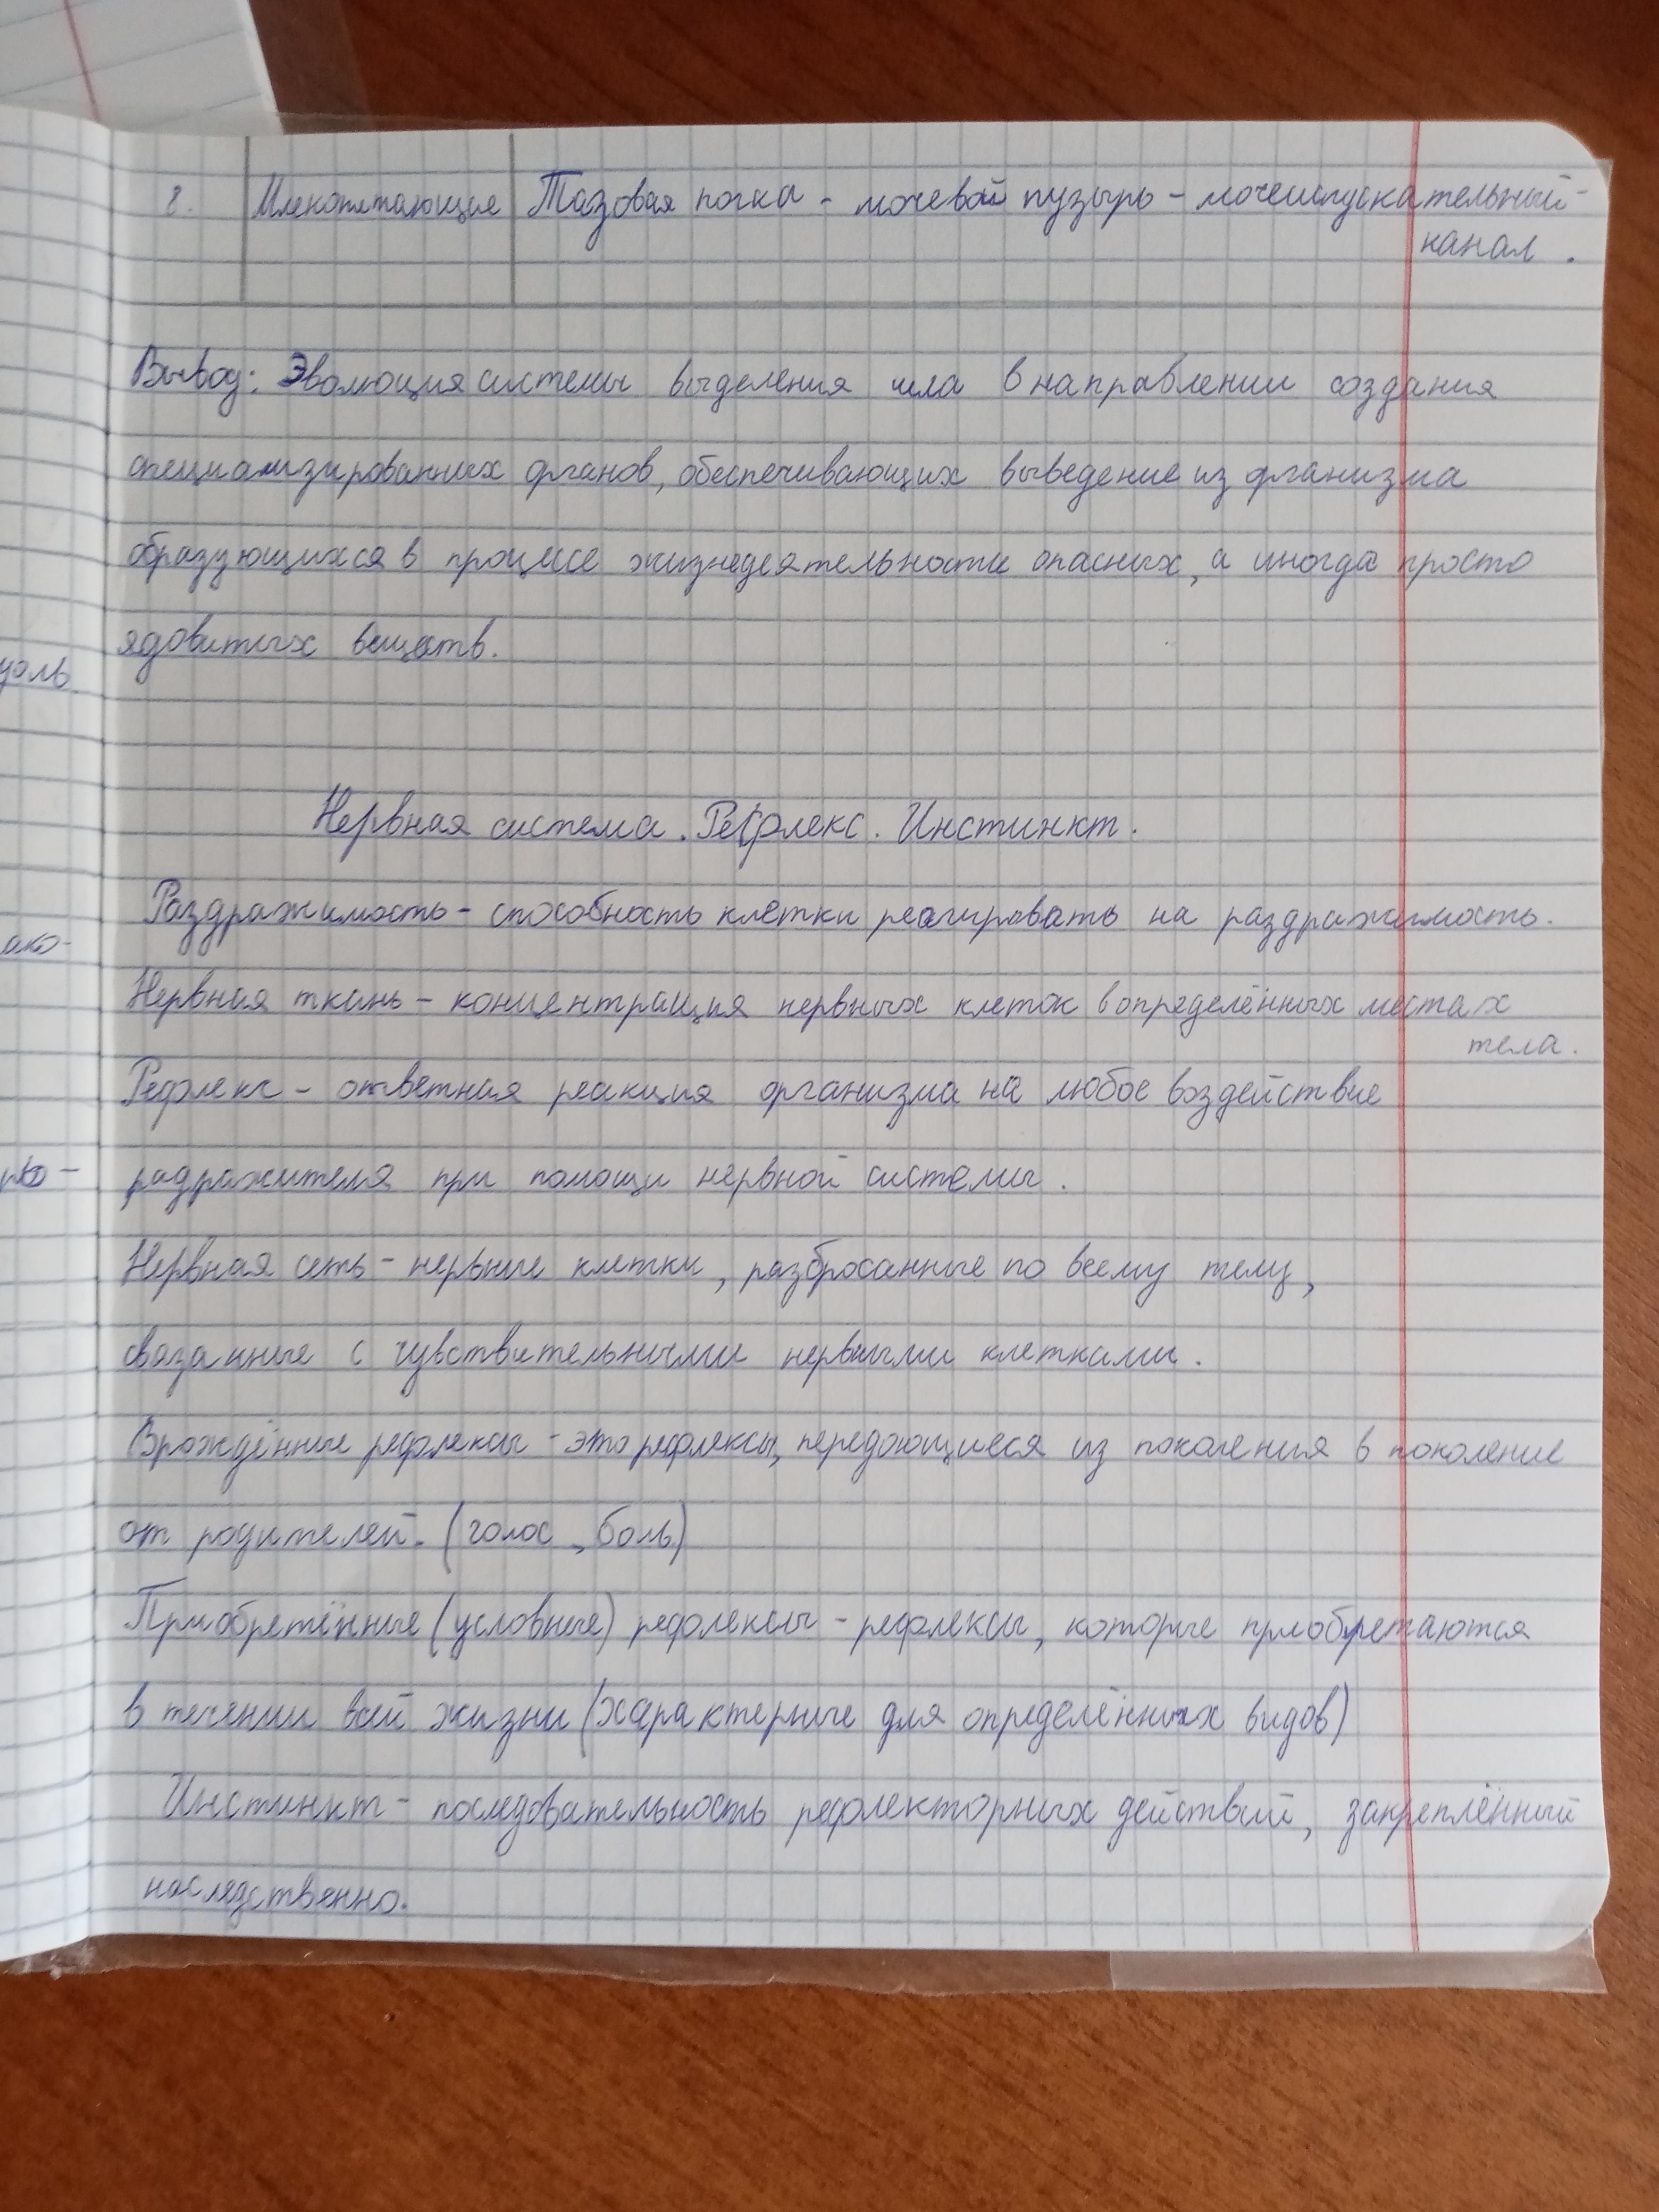 8. Млекопитающие Тазовая почка - мочевой пузырь - мочеиспускательный-
канал.
Вывод: Эволюция системы выделения шла в направлении создания
специализированных органов, обеспечивающих выведение из организма
образующихся в процессе жизнедеятельности опасных, а иногда просто
ядовитых веществ.
Нервная система. Рефлекс. Инстинкт.
Раздражимость - способность клетки реагировать на раздражимость.
Нервная ткань - концентрация нервных клеток в определённых местах
тела.
Рефлекс - ответная реакция организма на любое воздействие
радражителя при помощи нервной системы.
Нервная сеть - нервные клетки, разбросанные по всему телу,
связанные с чувствительными нервными клетками.
Врождённые рефлексы - это рефлексы, передающиеся из поколения в поколение
от родителей. (голос, боль)
Приобретённые (условные) рефлексы - рефлексы, которые приобретаются
в течении всей жизни (характерные для определённых видов)
Инстинкт - последовательность рефлекторных действий, закреплённый
наследственно.